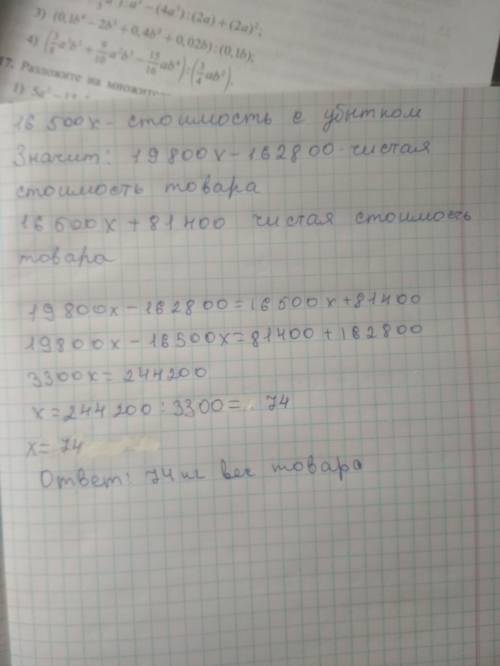 3) (0,1b⁴ − 2b³ + 0,4b² + 0,02b) : (0,1b);
17. Разложите на
16 500х - стоимость с убытком
Значит: 19 800х - 162800 - чистая
стоимость товара
16 500 х + 81 400 чистая стоимость
товара
19 800х - 162 800 = 16 500х + 81400
19800х - 16500х = 81400 + 162800
3300х = 244200
х = 244 200 : 3300 = 74
х = 74
Ответ: 74 кг вес товара